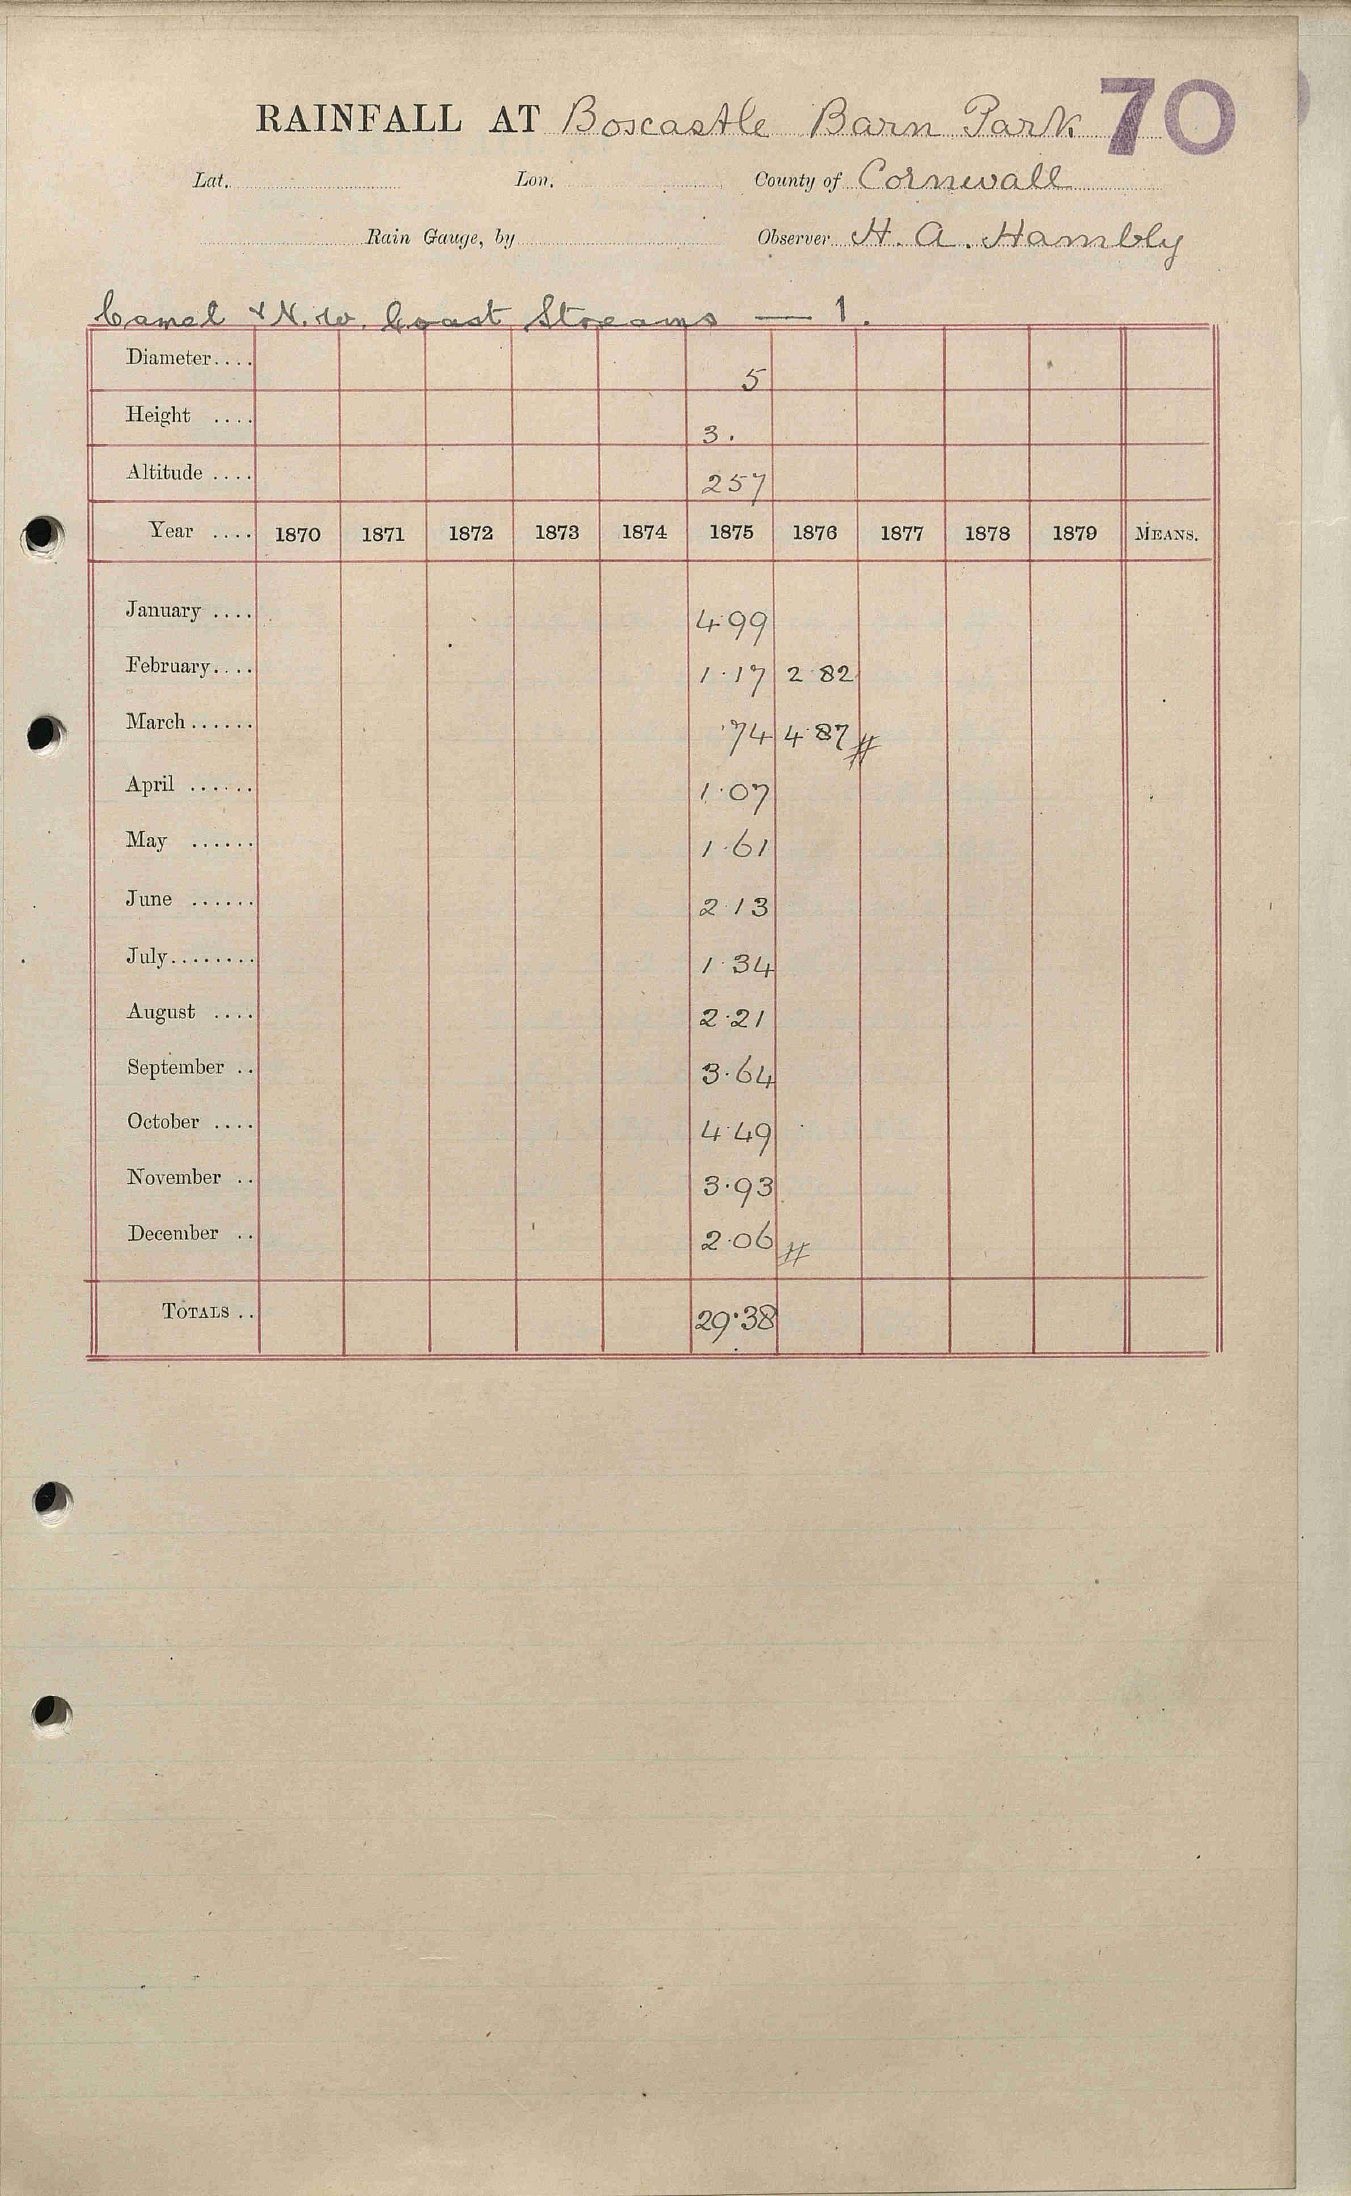 RAINFALL AT Boscastle Barn Park 70
Lat. Lon. County of Cornwall
Rain Gauge, by Observer H. A. Hambly
Camel & N.W. Coast Streams — 1.
Diameter.... 5
Height .... 3.
Altitude .... 257
Year .... 1870 1871 1872 1873 1874 1875 1876 1877 1878 1879 MEANS.
January .... 4.99
February.... 1.17 2.82
March...... .74 4.87 #
April ...... 1.07
May ...... 1.61
June ...... 2.13
July........ 1.34
August .... 2.21
September .. 3.64
October .... 4.49
November .. 3.93
December .. 2.06 #
TOTALS .. 29.38